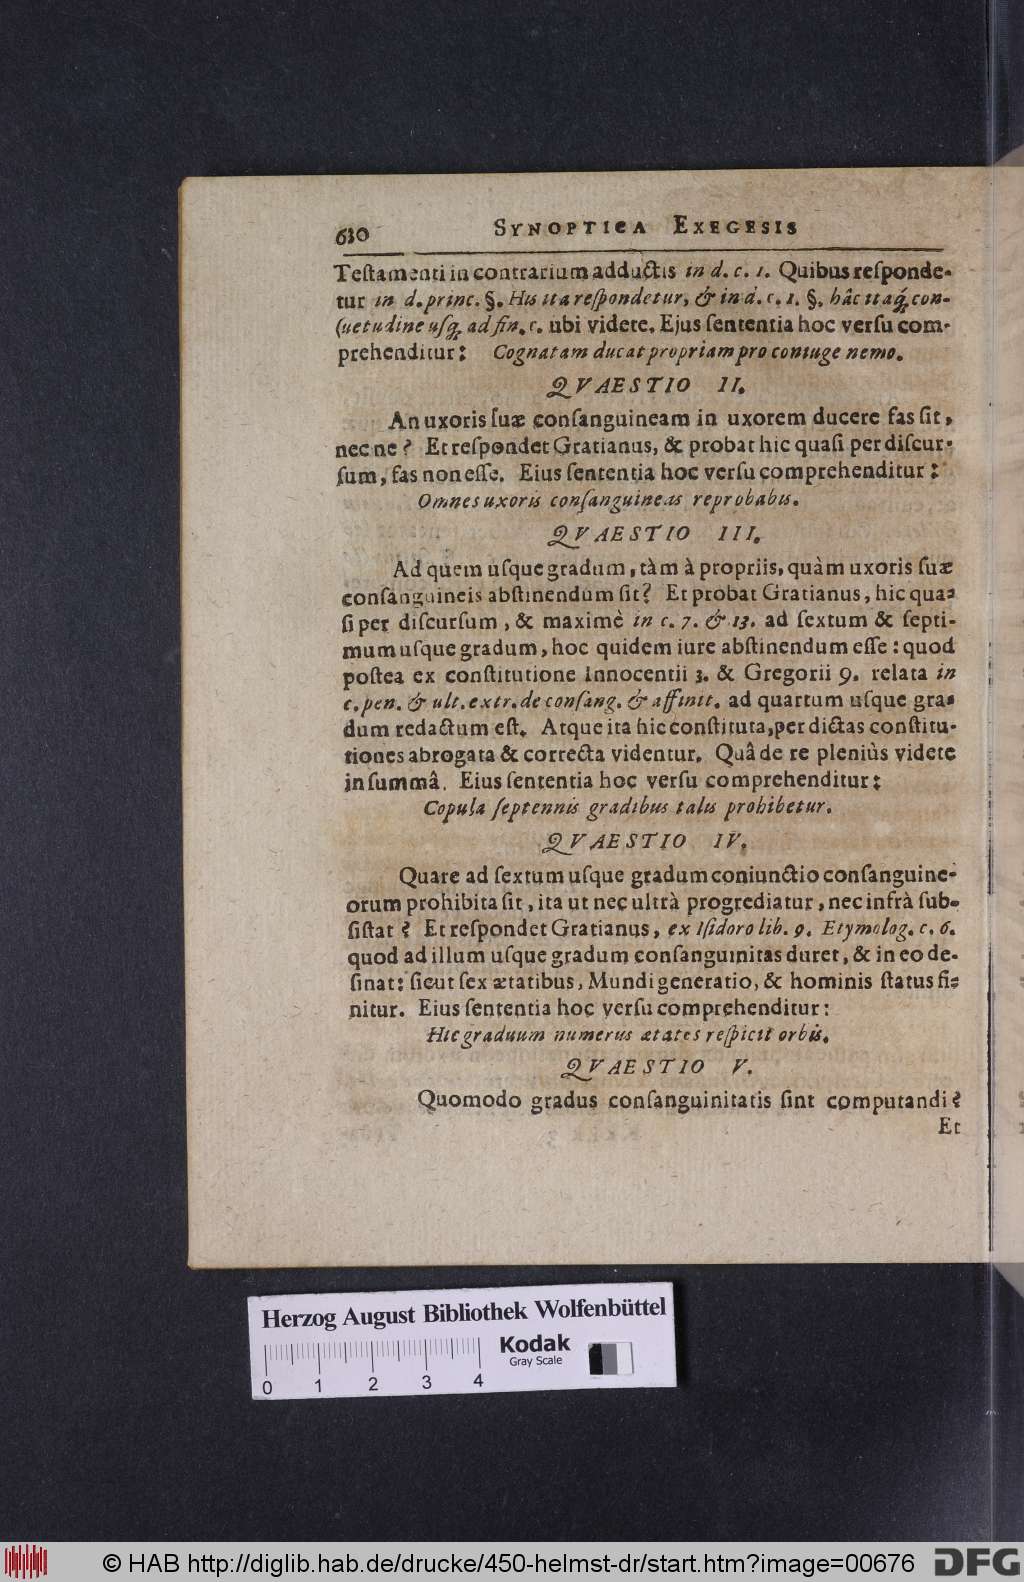 630 SYNOPTICA EXEGESIS
Teſtamenti in contrarium adductis in d. c. 1. Quibus reſponde-
tur in d. princ. §. His ita reſpondetur, & in d. c. 1. §. hâc itaq́; con-
ſuetudine uſq́; ad fin. c. ubi videte. Ejus ſententia hoc verſu com-
prehenditur: Cognatam ducat propriam pro coniuge nemo.
QVAESTIO II.
An uxoris ſuæ conſanguineam in uxorem ducere fas ſit,
nec ne? Et reſpondet Gratianus, & probat hic quaſi per diſcur-
ſum, fas non eſſe. Eius ſententia hoc verſu comprehenditur:
Omnes uxoris conſanguineas reprobabis.
QVAESTIO III.
Ad quem uſque gradum, tàm à propriis, quàm uxoris ſuæ
conſanguineis abſtinendum ſit? Et probat Gratianus, hic qua-
ſi per diſcurſum, & maximè in c. 7. & 13. ad ſextum & ſepti-
mum uſque gradum, hoc quidem iure abſtinendum eſſe: quod
poſtea ex conſtitutione Innocentii 3. & Gregorii 9. relata in
c. pen. & ult. extr. de conſang. & affinit. ad quartum uſque gra-
dum redactum eſt. Atque ita hic conſtituta, per dictas conſtitu-
tiones abrogata & correcta videntur. Quâ de re pleniùs videte
in ſummâ. Eius ſententia hoc verſu comprehenditur:
Copula ſeptennis gradibus talis prohibetur.
QVAESTIO IV.
Quare ad ſextum uſque gradum coniunctio conſanguine-
orum prohibita ſit, ita ut nec ultrà progrediatur, nec infrà ſub-
ſiſtat? Et reſpondet Gratianus, ex Iſidoro lib. 9. Etymolog. c. 6.
quod ad illum uſque gradum conſanguinitas duret, & in eo de-
ſinat: ſicut ſex ætatibus, Mundi generatio, & hominis ſtatus fi-
nitur. Eius ſententia hoc verſu comprehenditur:
Hic graduum numerus ætates reſpicit orbis.
QVAESTIO V.
Quomodo gradus conſanguinitatis ſint computandi?
Et
Herzog August Bibliothek Wolfenbüttel
Kodak
Gray Scale
0 1 2 3 4
© HAB http://diglib.hab.de/drucke/450-helmst-dr/start.htm?image=00676 DFG